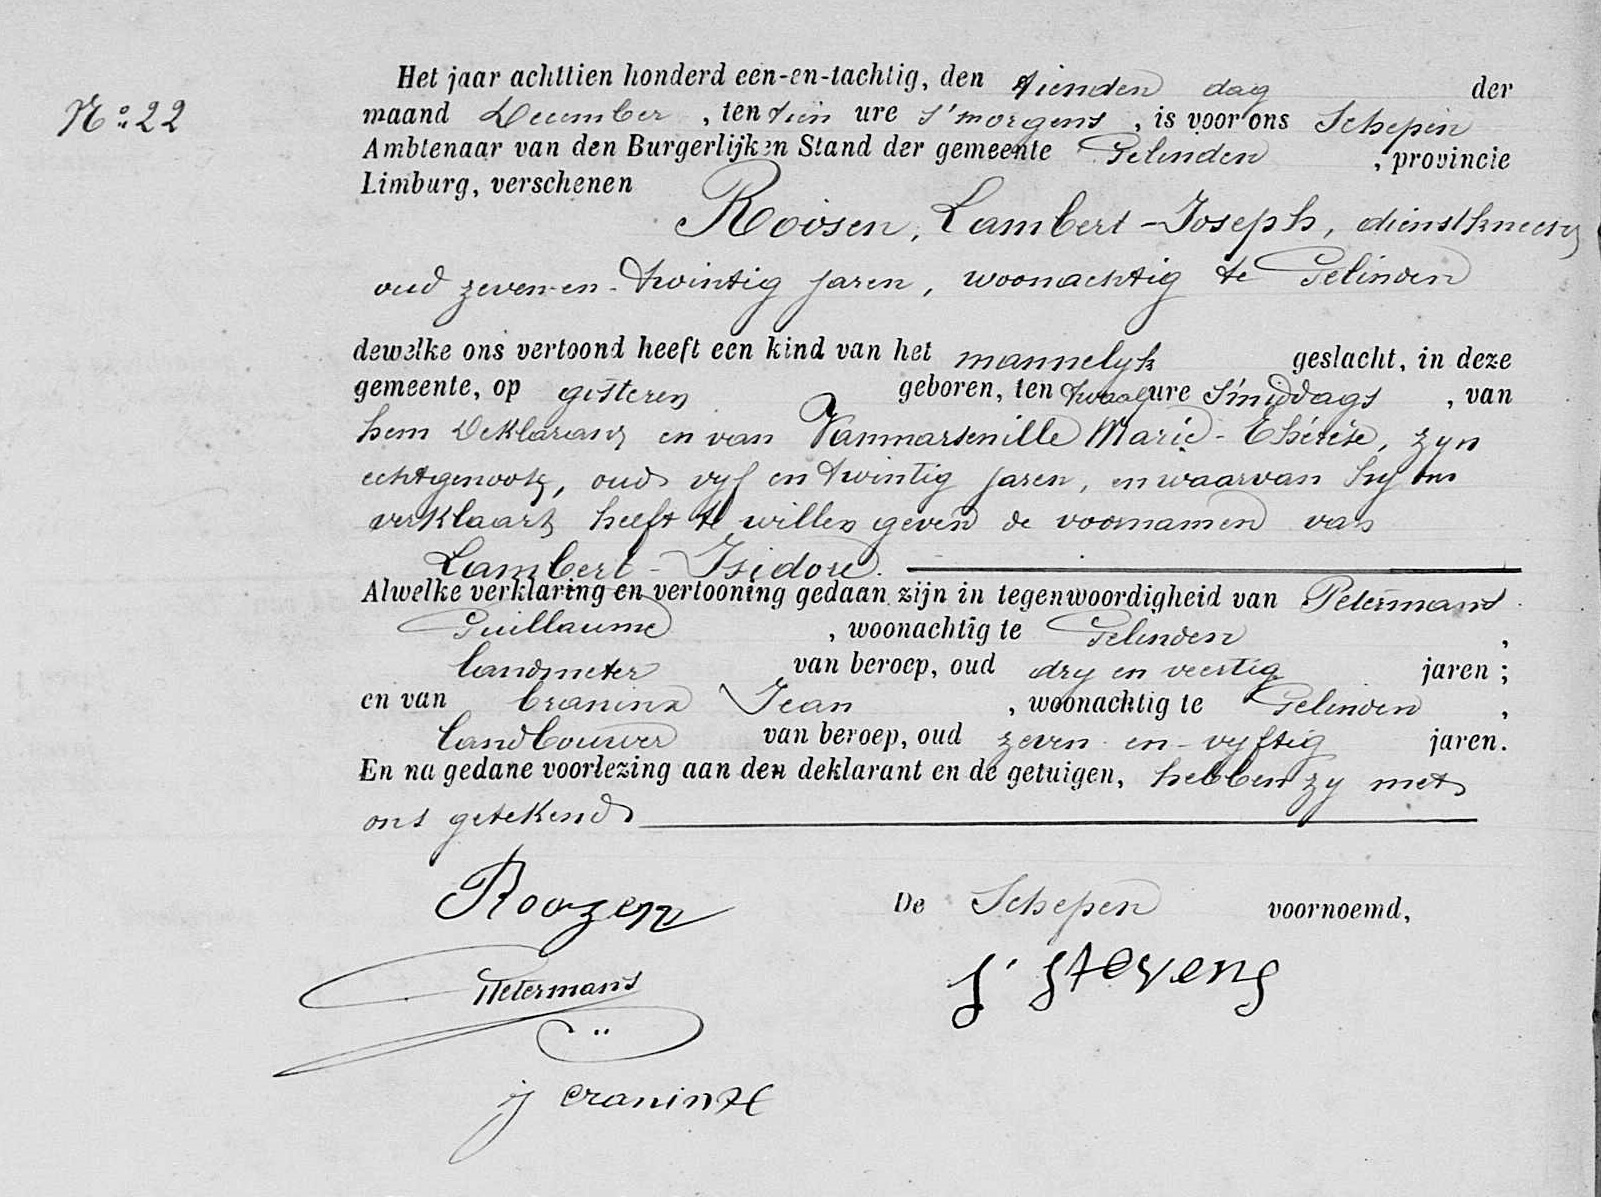 Het jaar achttien honderd een-en-tachtig, den tienden dag der
Nº 22
maand December, ten tien ure s'morgens, is voor ons Schepen
Ambtenaar van den Burgerlijken Stand der gemeente Gelinden, provincie
Limburg, verschenen
Roosen, Lambert-Joseph, dienstknecht
oud zeven-en-twintig jaren, woonachtig te Gelinden
dewelke ons vertoond heeft een kind van het mannelyk geslacht, in deze
gemeente, op gisteren geboren, ten twaalf ure s'middags, van
hem Deklarant en van Vanmarsenille Marie-Thérèse, zyn
echtgenoote, oud vyf en twintig jaren, en waarvan hy ons
verklaart heeft te willen geven de voornamen van
Lambert-Isidore.
Alwelke verklaring en vertooning gedaan zijn in tegenwoordigheid van Petermans
Guillaume, woonachtig te Gelinden,
landmeter van beroep, oud dry en veertig jaren;
en van Craninx Jean, woonachtig te Gelinden,
landbouwer van beroep, oud zeven-en-vyftig jaren.
En na gedane voorlezing aan den deklarant en de getuigen, hebben zy met
ons getekend
Roozen
De Schepen voornoemd,
Petermans
Stevens
j craninx